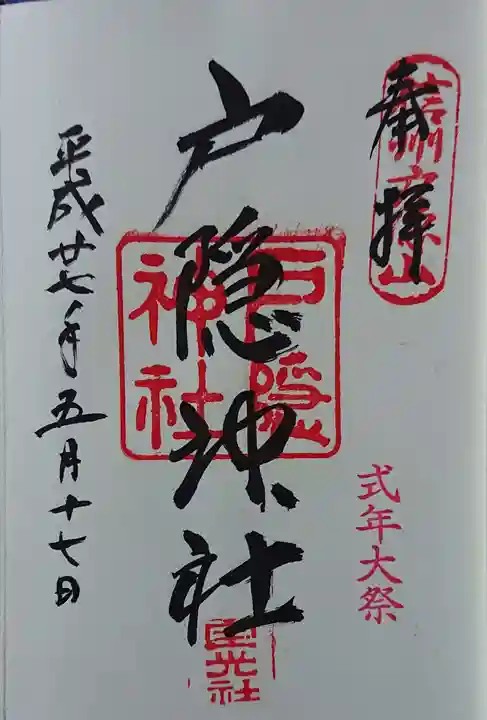 奉拝
信州戸隠山
式年大祭
戸隠神社
戸隠
神社
中社
平成廿七年五月十七日